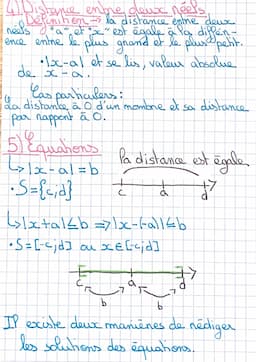 4) Distance entre deux réels
Définition → la distance entre deux
réels "a" et "x" est égale à la différ-
ence entre le plus grand et le plus petit.
• |x-a| et se lis, valeur absolue
de x-a.
Cas particuliers:
La distante à 0 d'un nombre et sa distance
par rapport à 0.
5) Équations
↳ |x-a|=b
la distance est égale
• S={c;d}
c a d
↳ |x+a|≤b ⇒ |x-(-a)|≤b
• S=[-c;d] ou x∈[-c;d]
c a d
b b
Il existe deux manières de rédiger
les solutions des équations.